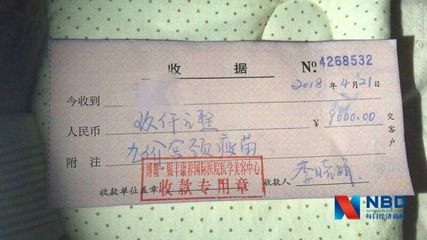 收 据 No 4268532
2018 年 4 月 21
今收到
人民币 玖仟元整 ¥9000.00
附注 九价宫颈疫苗
交客户
博鳌·银丰康养国际医院医学美容中心
收款专用章
收款单位盖章 收款人
NBD
每日经济新闻